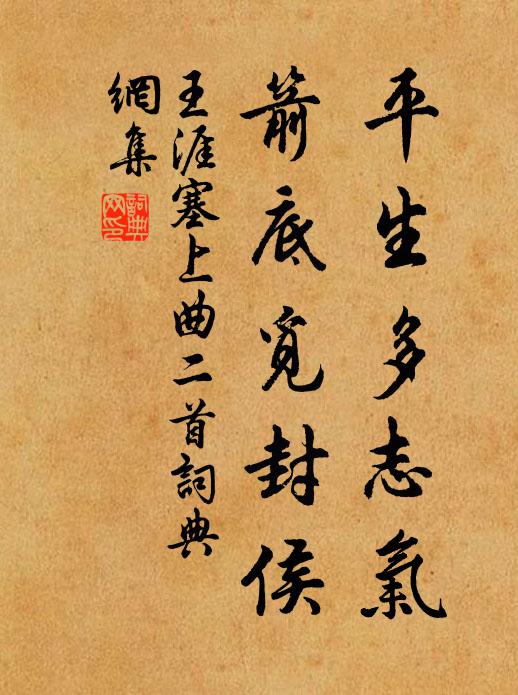 平生多志氣
箭底覓封侯
王涯塞上曲二首詞典
網集
詞典
网印